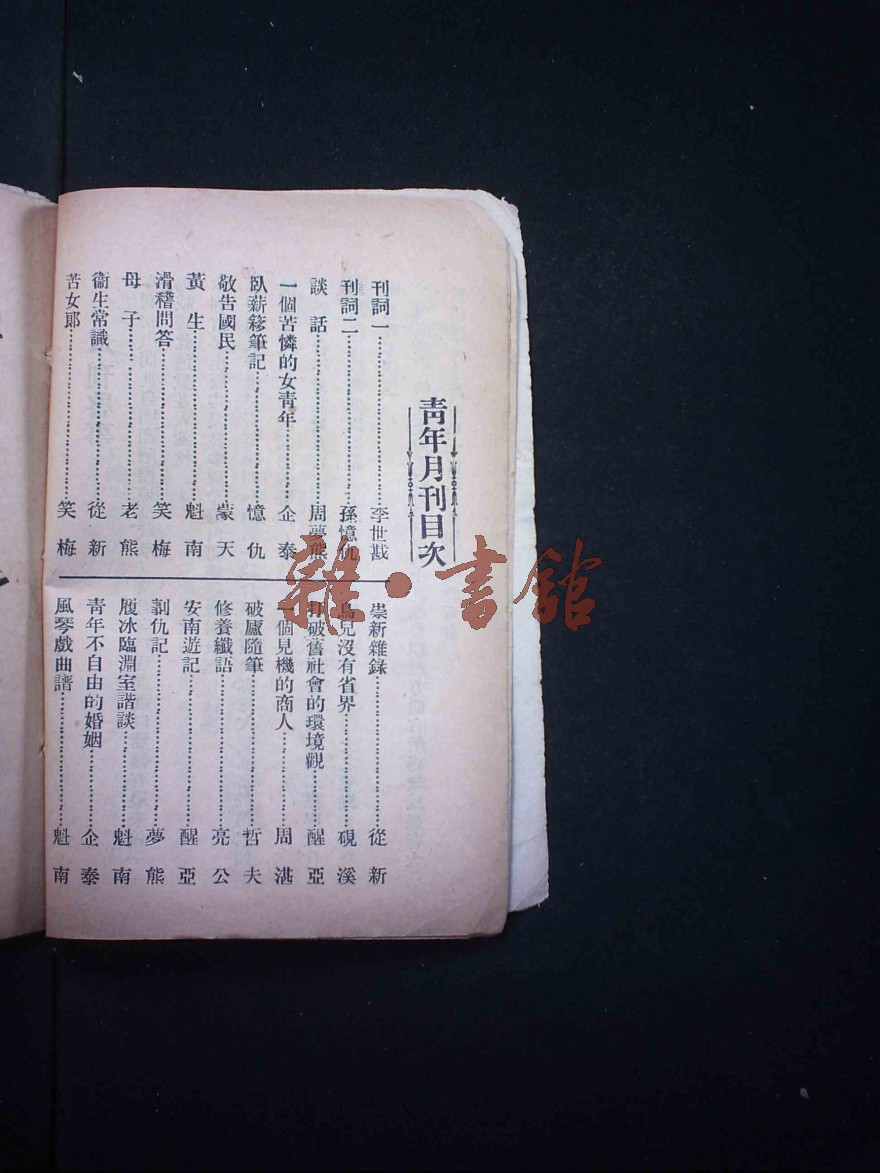 青年月刊目次
刊詞一⋯⋯李世戡
刊詞二⋯⋯孫憶仇
談話⋯⋯周夢熊
一個苦憐的女青年⋯⋯企泰
臥薪簃筆記⋯⋯憶仇
敬告國民⋯⋯蒙天
黃生⋯⋯魁南
滑稽問答⋯⋯笑梅
母子⋯⋯老熊
衞生常識⋯⋯從新
苦女郞⋯⋯笑梅
崇新雜錄⋯⋯從新
鳥兒沒有省界⋯⋯硯溪
打破舊社會的環境觀⋯⋯醒亞
一個見機的商人⋯⋯周湛
破廬隨筆⋯⋯哲夫
修養纖語⋯⋯亮公
安南遊記⋯⋯醒亞
剸仇記⋯⋯夢熊
履冰臨淵室諧談⋯⋯魁南
靑年不自由的婚姻⋯⋯企泰
風琴戲曲譜⋯⋯魁南
雜·書館